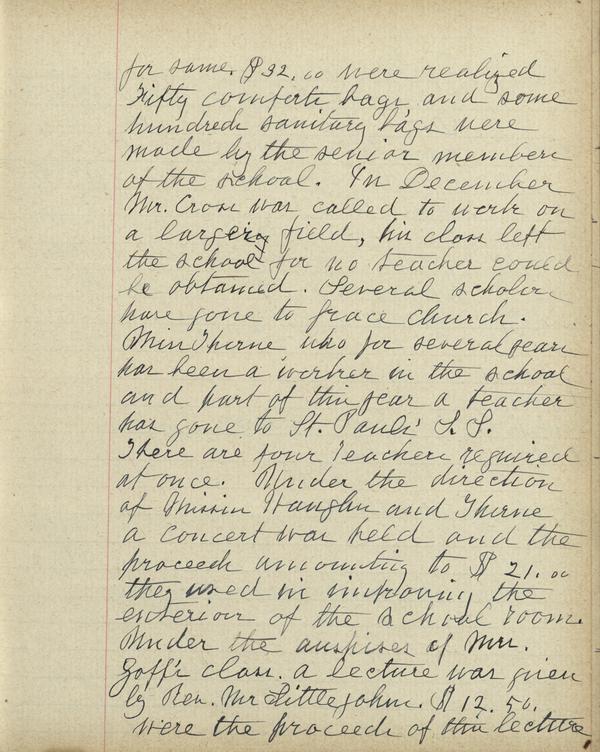 for same. $32.00 were realized
Fifty comforts bags, and some
hundreds sanitary bags were
made by the senior members
of the school. In December
Mr. Cross was called to work on
a larger field, his class left
the school for no teacher could
be obtained. Several scholars
have gone to Grace church.
Miss Thorne who for several years
has been a worker in the school
and part of this year a teacher
has gone to St. Pauls' S. S.
There are four Teachers required
at once. Under the direction
of Misses Vaughn and Thorne
a concert was held and the
proceeds amounting to $21.00
they used in improving the
exteriour of the school room.
Under the auspises of Mrs.
Goff's class. a lecture was given
by Rev. Mr Littlejohn. $12.50.
were the proceeds of this lecture